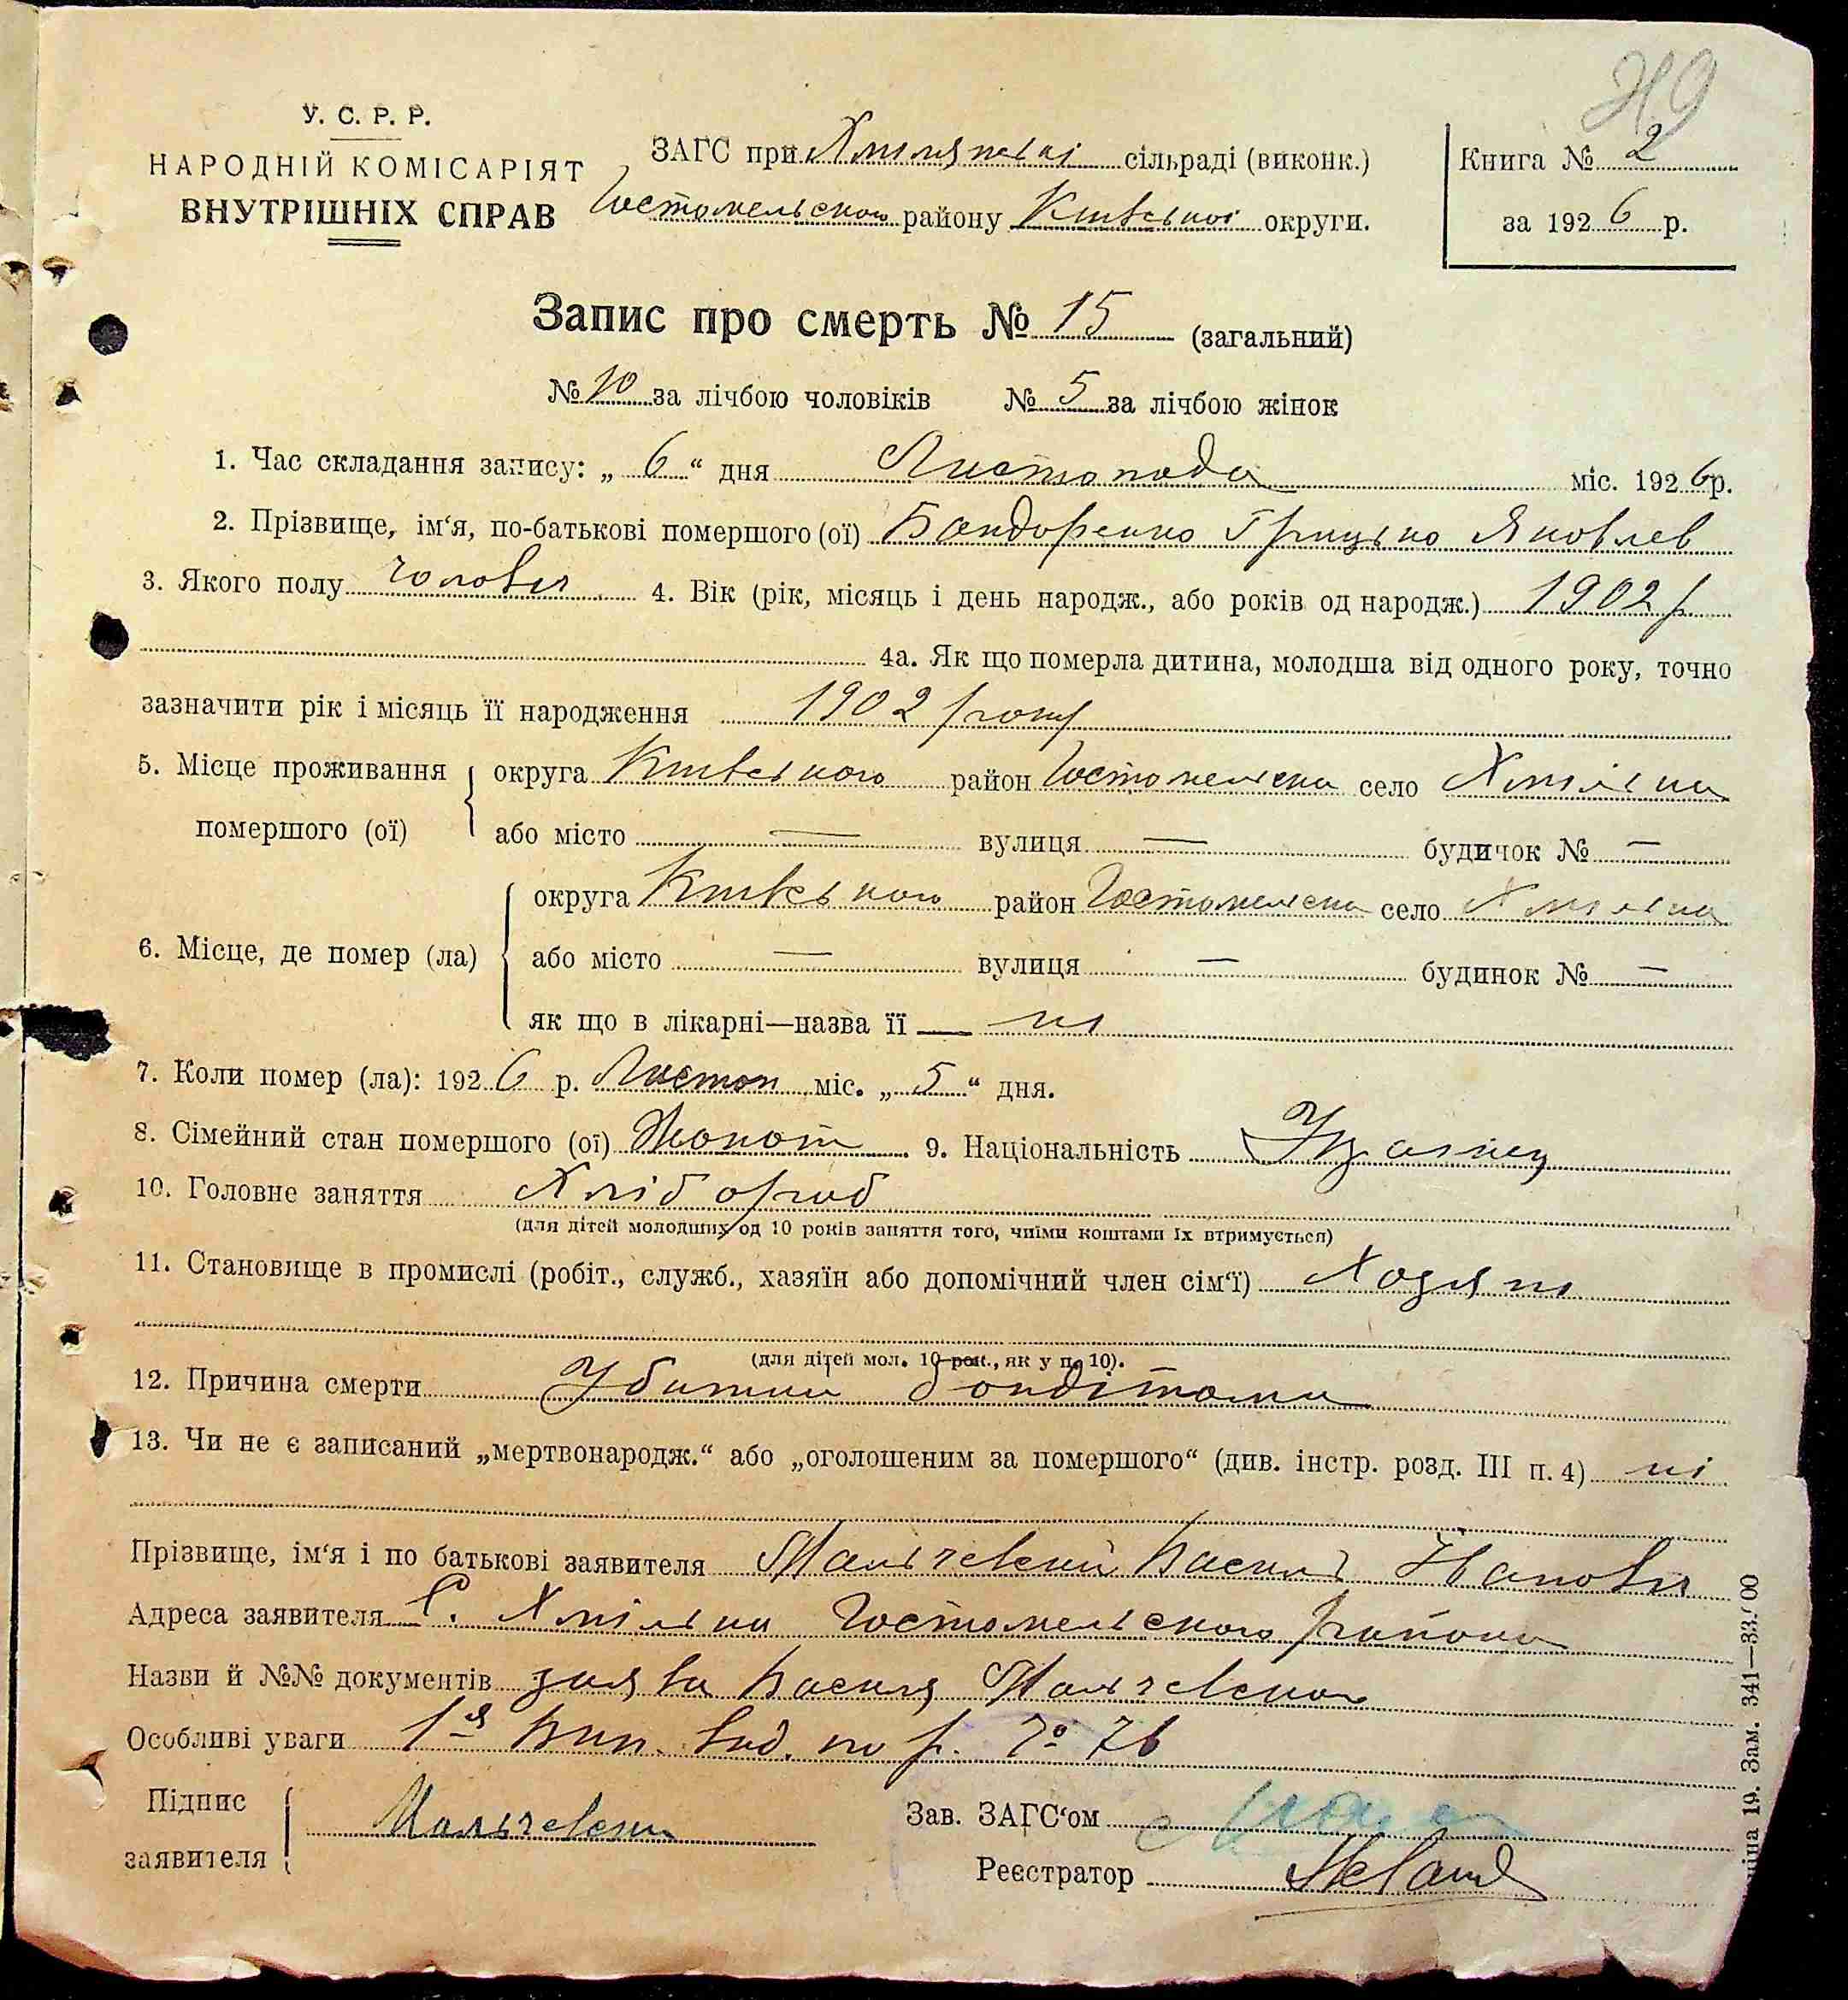 У. С. Р. Р.
НАРОДНІЙ КОМІСАРІЯТ
ВНУТРІШНІХ СПРАВ
ЗАГС при сільраді (виконк.)
Гостомельского району Київської округи.
Книга № 2
за 1926 р.
Запис про смерть № 15 (загальний)
№ 10 за лічбою чоловіків № 5 за лічбою жінок
1. Час складання запису: „ 6 “ дня Листопада міс. 1926 р.
2. Прізвище, ім‘я, по-батькові помершого (ої) Бондоренко Грицько Яковлев
3. Якого полу чоловіч 4. Вік (рік, місяць і день народж., або років од народж.) 1902 р
4а. Як що померла дитина, молодша від одного року, точно
зазначити рік і місяць її народження 1902 року
5. Місце проживання помершого (ої)
округа Київського район Гостомельск село Хмільна
або місто — вулиця — будинок № —
6. Місце, де помер (ла)
округа Київського район Гостомельск село Хмільна
або місто — вулиця — будинок № —
як що в лікарні—назва її — ні
7. Коли помер (ла): 1926 р. Листоп міс. „ 5 “ дня.
8. Сімейний стан помершого (ої) Жонат 9. Національність
10. Головне заняття Хлібороб
(для дітей молодших од 10 років заняття того, чиїми коштами їх втримується)
11. Становище в промислі (робіт., служб., хазяїн або допомічний член сім‘ї) Хозяін
(для дітей мол. 10 рок., як у п. 10).
12. Причина смерти Убитий бондітами
13. Чи не є записаний „мертвонародж.“ або „оголошеним за помершого“ (див. інстр. розд. III п. 4) ні
Прізвище, ім‘я і по батькові заявителя Мальчевський Василь Іванович
Адреса заявителя С. Хмільна Гостомельского району
Назви й №№ документів заява Василя Мальчевского
Особливі уваги 1я вип. вид. по р. № 76
Підпис заявителя Мальчевский
Зав. ЗАГС‘ом
Реєстратор
19. Зам. 341—33.